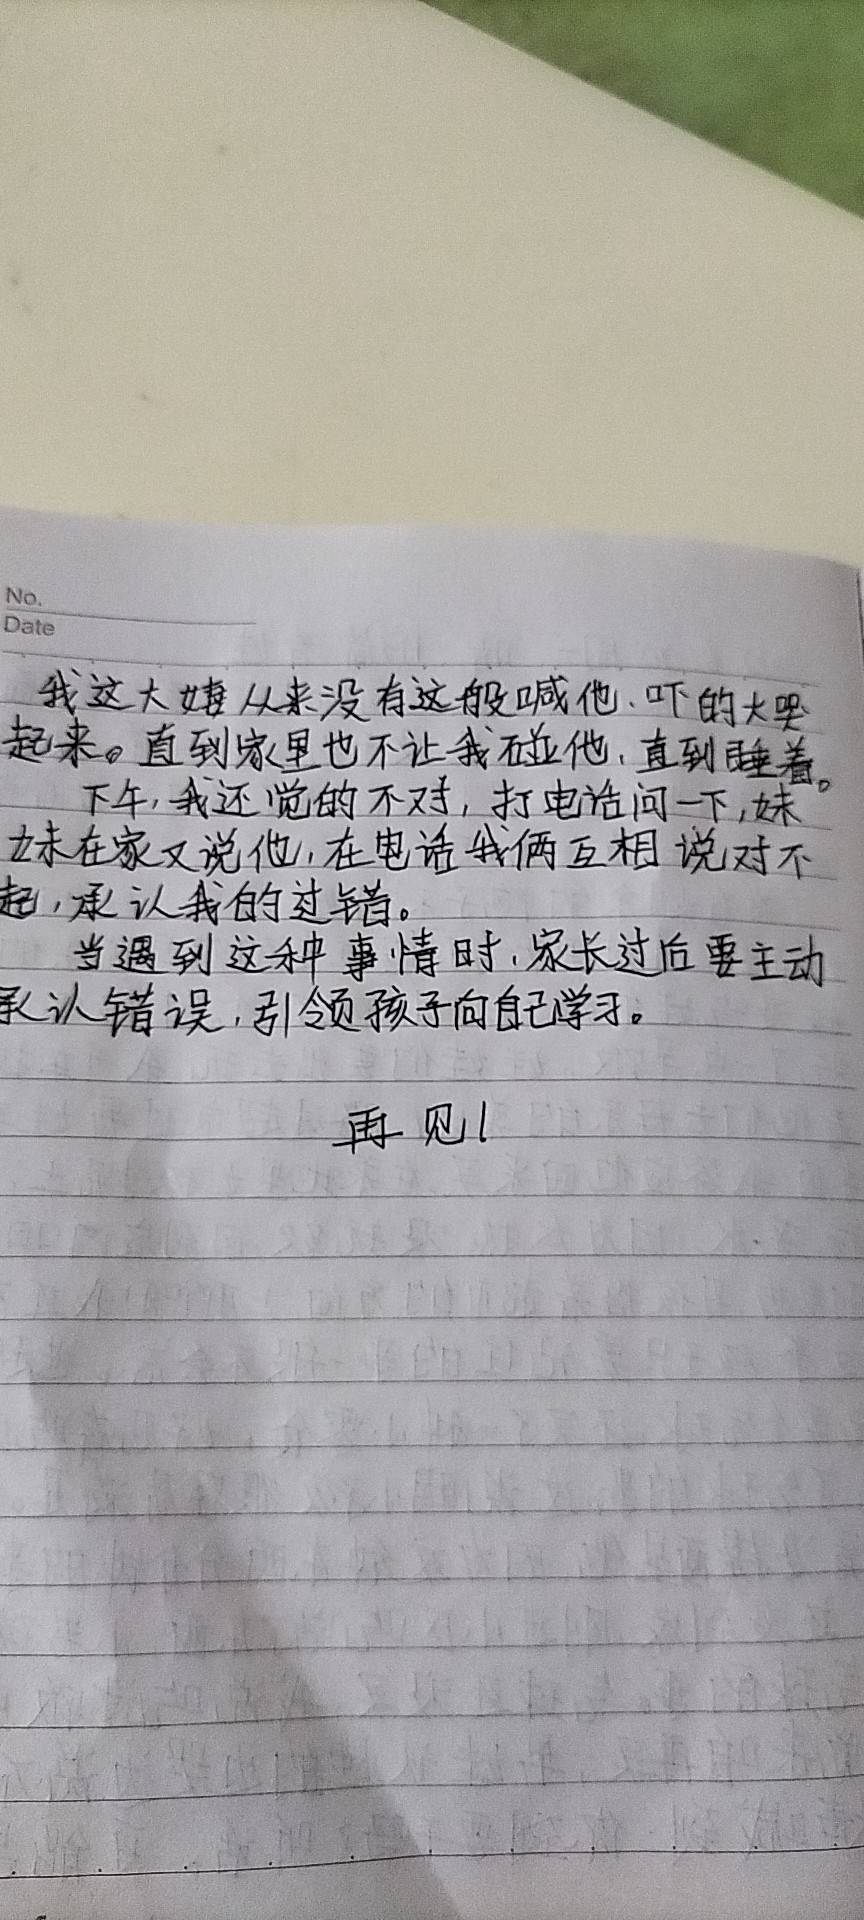 No.
Date
我这大姨从来没有这般喊他.吓的大哭
起来。直到家里也不让我碰他,直到睡着。
下午,我还觉的不对,打电话问一下,妹
妹在家又说他,在电话我俩互相说对不
起,承认我的过错。
当遇到这种事情时,家长过后要主动
承认错误,引领孩子向自己学习。
再见!